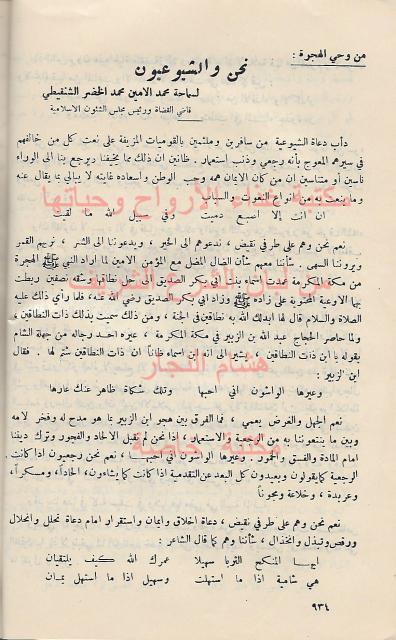 من وحي الهجرة :
نحن والشيوعيون
لسماحة محمد الامين محمد الخضر الشنقيطي
قاضي القضاة ورئيس مجلس الشئون الاسلامية
دأب دعاة الشيوعية من سافرين وملثمين بالقوميات المزيفة على نعت كل من خالفهم
في سيرهم المعوج بأنه رجعي وذنب استعمار . ظانين ان ذلك مما يخيفنا ويرجع بنا الى الوراء
ناسين أو متناسين ان من كان الايمان همه وحب الوطن واسعاده غايته لا يبالي بما يقال عنه
وما ينعت به من انواع النعوت والسباب
ان انت إلا اصبع دميت وفي سبيل الله ما لقيت
نعم نحن وهم على طرفي نقيض ، ندعوهم الى الخير ، ويدعوننا الى الشر ، نريهم القمر
ويروننا السهى . شأننا معهم شأن الضال المضل مع المؤمن الامين لما اراد النبي ﷺ الهجرة
من مكة المكرمة عمدت اسماء بنت أبي بكر الصديق الى حل نطاقها وشقه نصفين ربطت
بهما الاوعية المحتوية على زاده ﷺ وزاد أبي بكر الصديق رضي الله عنه، فلما رأى ذلك عليه
الصلاة والسلام قال لها ابدلك الله به نطاقين في الجنة ، ومن ذلك سميت بذلك ذات النطاقين،
ولما حاصر الحجاج عبد الله بن الزبير في مكة المكرمة ، عيره احد رجاله من جهة الشام
بقوله يا ابن ذات النطاقين ، يشير الى انه ابن اسماء ظاناً ان ذات النطاقين شتم لها . فقال
ابن الزبير :
وعيرها الواشون اني احبها وتلك شكاة ظاهر عنك عارها
نعم الجهل والغرض يعمي ، فما الفرق بين هجو ابن الزبير بما هو مدح له وفخر لامه
وبين ما ينعتوننا به من الرجعية والاستعمار ، اذا نحن لم نقبل الالحاد والفجور وترك ديننا
امام المادة والفسق والخمور . وعيرها الواشون اني احبها ، نعم نحن رجعيون اذا كانت
الرجعية كما يقولون وبعيدون كل البعد عن التقدمية اذا كانت كما يشاءون، الحاداً، ومسكراً،
وعربدة ، وخلاعة ومجونا
نعم نحن وهم على طرفي نقيض ، دعاة اخلاق وايمان واستقرار امام دعاة تحلل وانحلال
ورقص وتبذل وانخذال ، شأننا وهم كما قال الشاعر :
ايها المنكح الثريا سهيلا عمرك الله كيف يلتقيان
هي شامية اذا ما استهلت وسهيل اذا ما استهل يمان
٩٣٤
مكتبة غذاء الأرواح وحياتها
هشام النجار
مكتبة خاصة